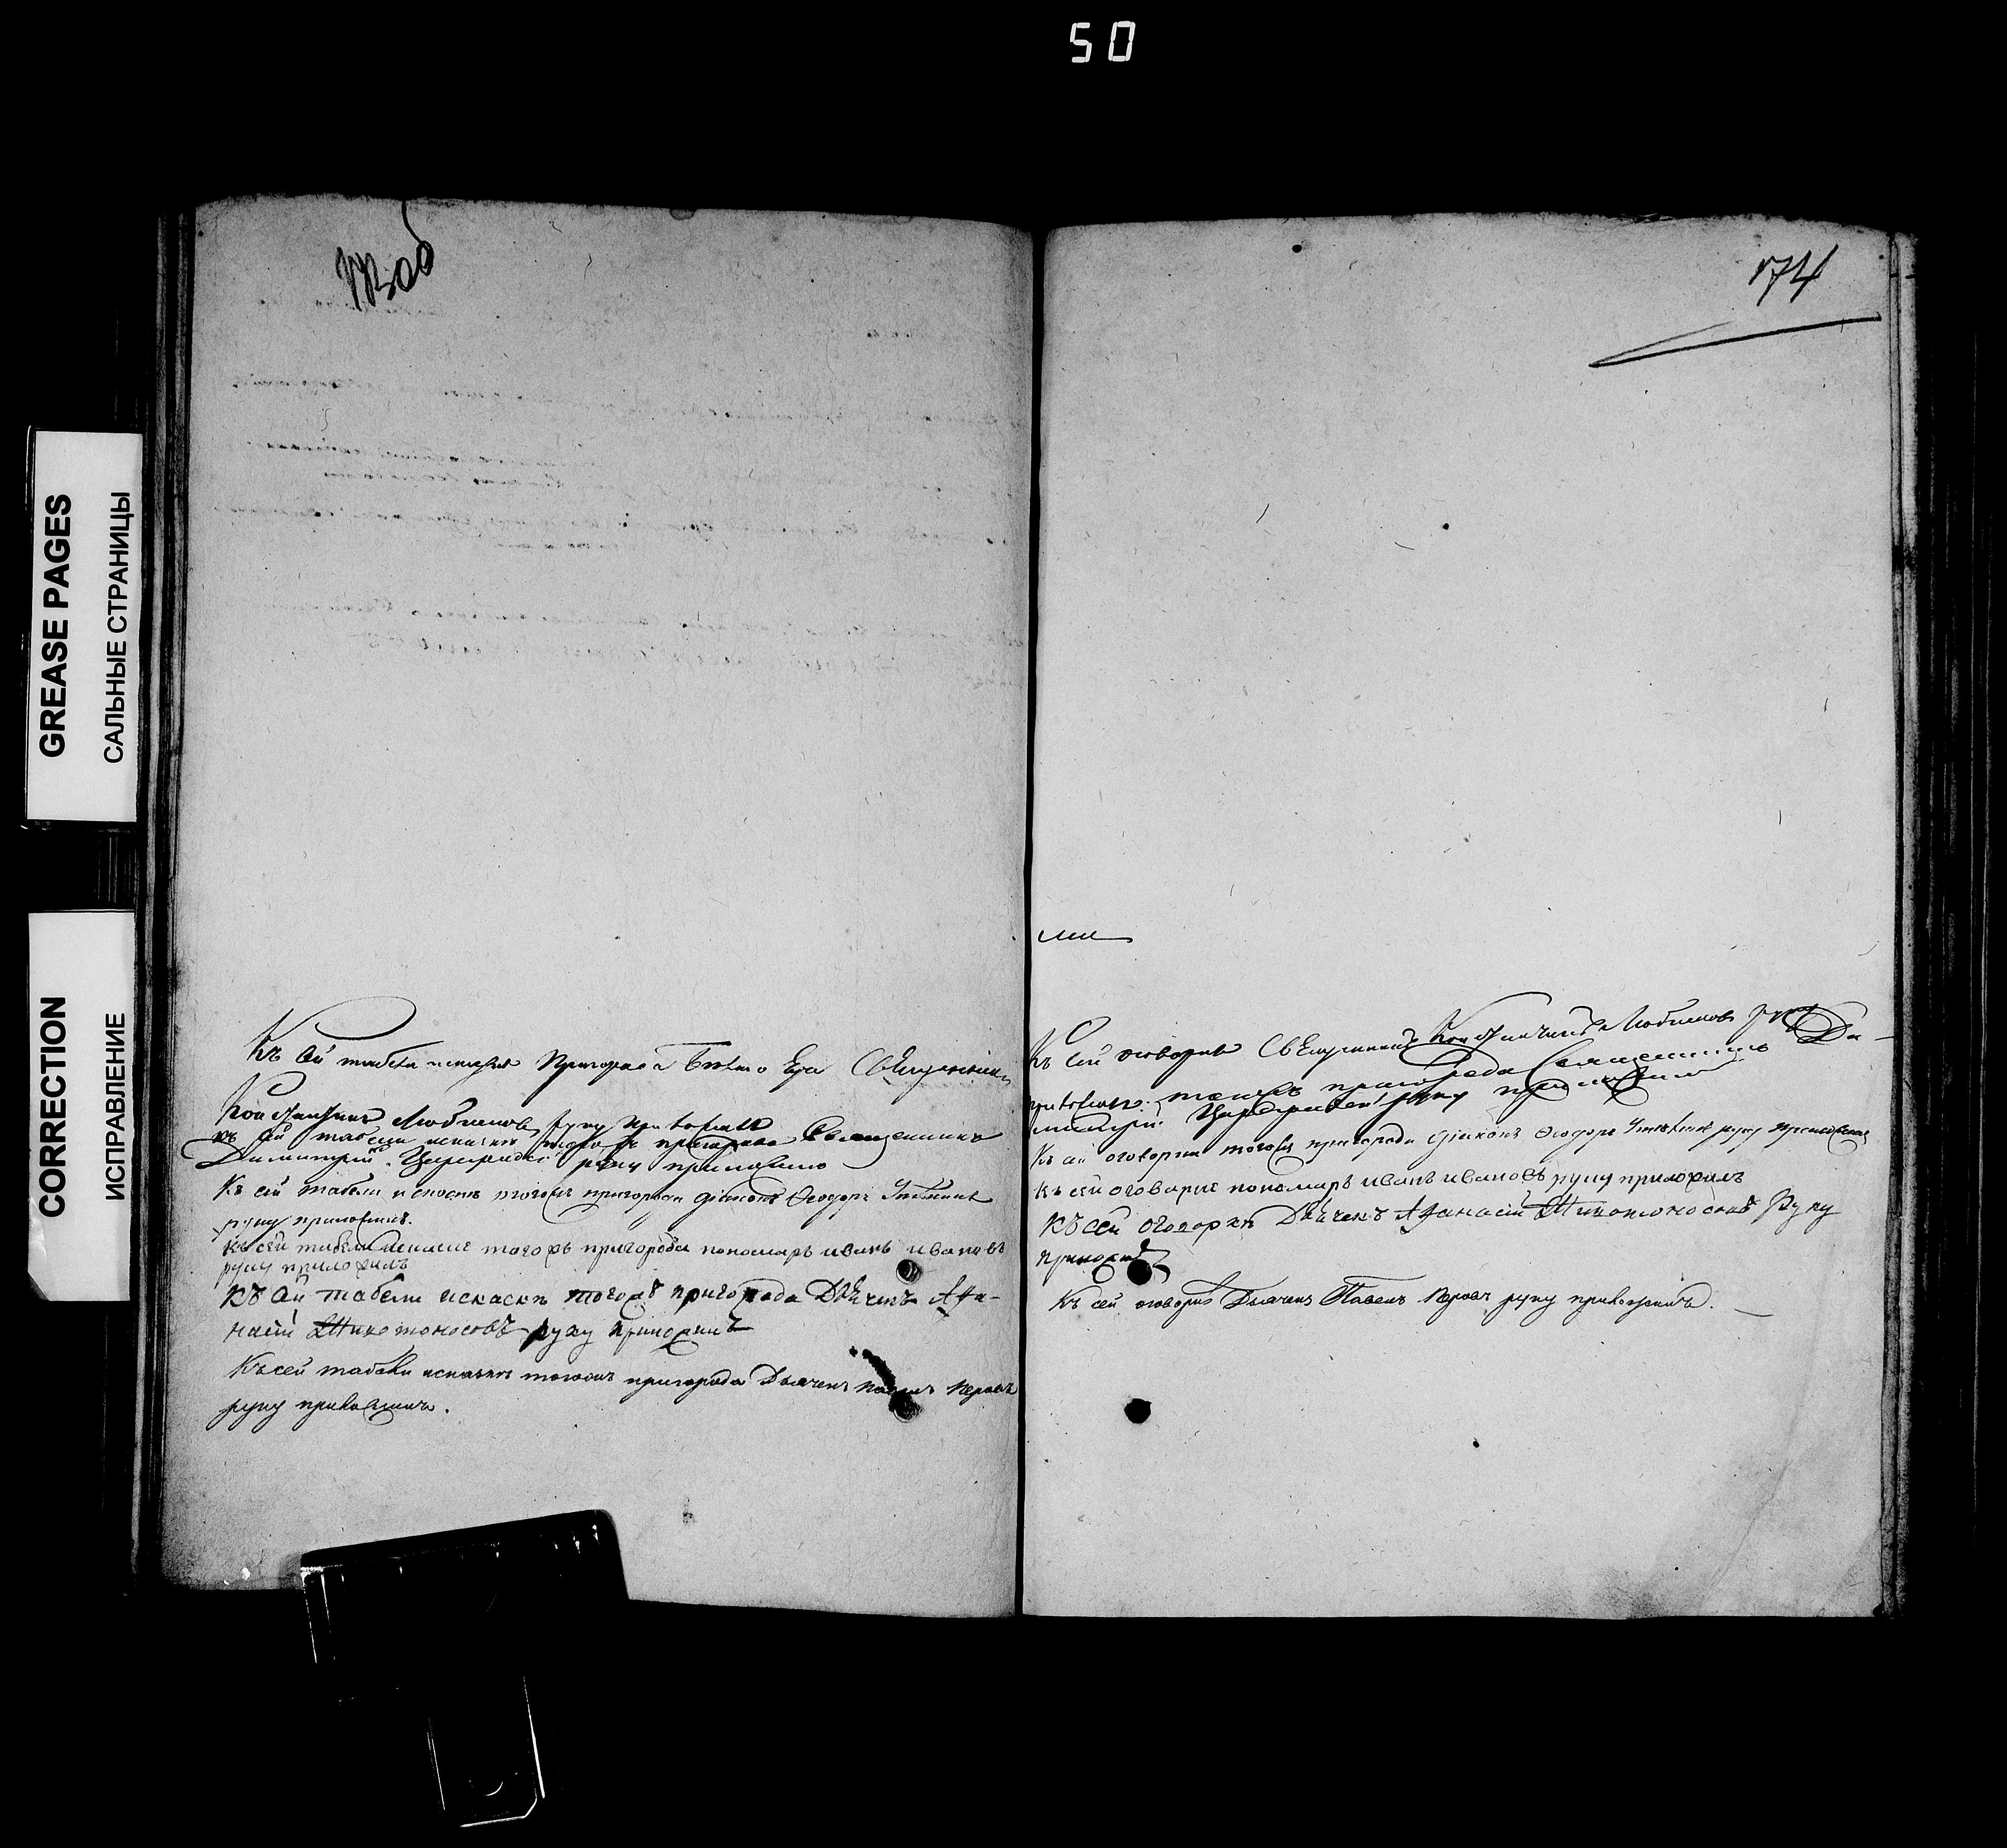 50
GREASE PAGES
САЛЬНЫЕ СТРАНИЦЫ
CORRECTION
ИСПРАВЛЕНИЕ
173 об
Къ сей табели искаске Пригорода Священникъ
Константинъ Любимовъ руку приложилъ
къ сей табели искаске тогожъ пригорода Священникъ
Димитрий руку приложилъ
Къ сей табели искаске тогожъ пригорода діаконъ Ѳеодоръ
руку приложилъ.
Къ сей табели искаске тогожъ пригорода пономарь иванъ ивановъ
руку приложилъ
Къ сей табели искаскѣ тогожъ пригорода Дьячекъ Афа-
насій руку приложилъ
Къ сей табели искаскѣ тогожъ пригорода Дьячекъ павелъ
руку приложилъ.
174
ми
Къ сей оговорке Священникъ Константинъ Любимовъ руку
приложилъ. тогожъ пригорода Священникъ Ди-
митрий руку приложилъ
Къ сей оговорки тогожъ пригорода діаконъ Ѳеодоръ руку приложилъ
Къ сей оговорке пономарь иванъ ивановъ руку приложилъ
Къ сей оговоркѣ Дьячекъ Афанасій руку
приложилъ
Къ сей оговорке Дьячекъ Павелъ руку приложилъ.